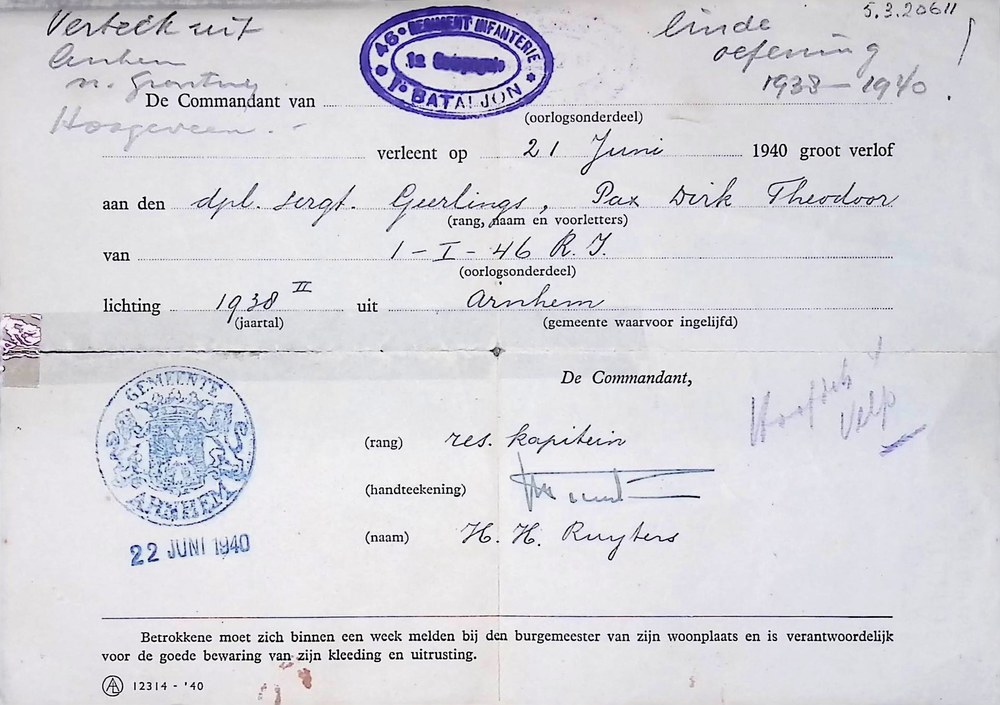 5.3.20611
Verteek uit
Arnhem
n. Groning
Hoogeveen. -
einde
oefening
1938-1940.
46e REGIMENT INFANTERIE
1e Compagnie
Ie BATALJON
De Commandant van
(oorlogsonderdeel)
verleent op 21 Juni 1940 groot verlof
aan den dpl. sergt. Geerlings, Pax Dirk Theodoor
(rang, naam en voorletters)
van 1-I-46 R.I.
(oorlogsonderdeel)
lichting 1938 II uit Arnhem
(jaartal) (gemeente waarvoor ingelijfd)
De Commandant,
Velp
GEMEENTE
ARNHEM
22 JUNI 1940
(rang) res. kapitein
(handteekening)
(naam) H. H. Ruyters
Betrokkene moet zich binnen een week melden bij den burgemeester van zijn woonplaats en is verantwoordelijk
voor de goede bewaring van zijn kleeding en uitrusting.
AL 12314 - '40